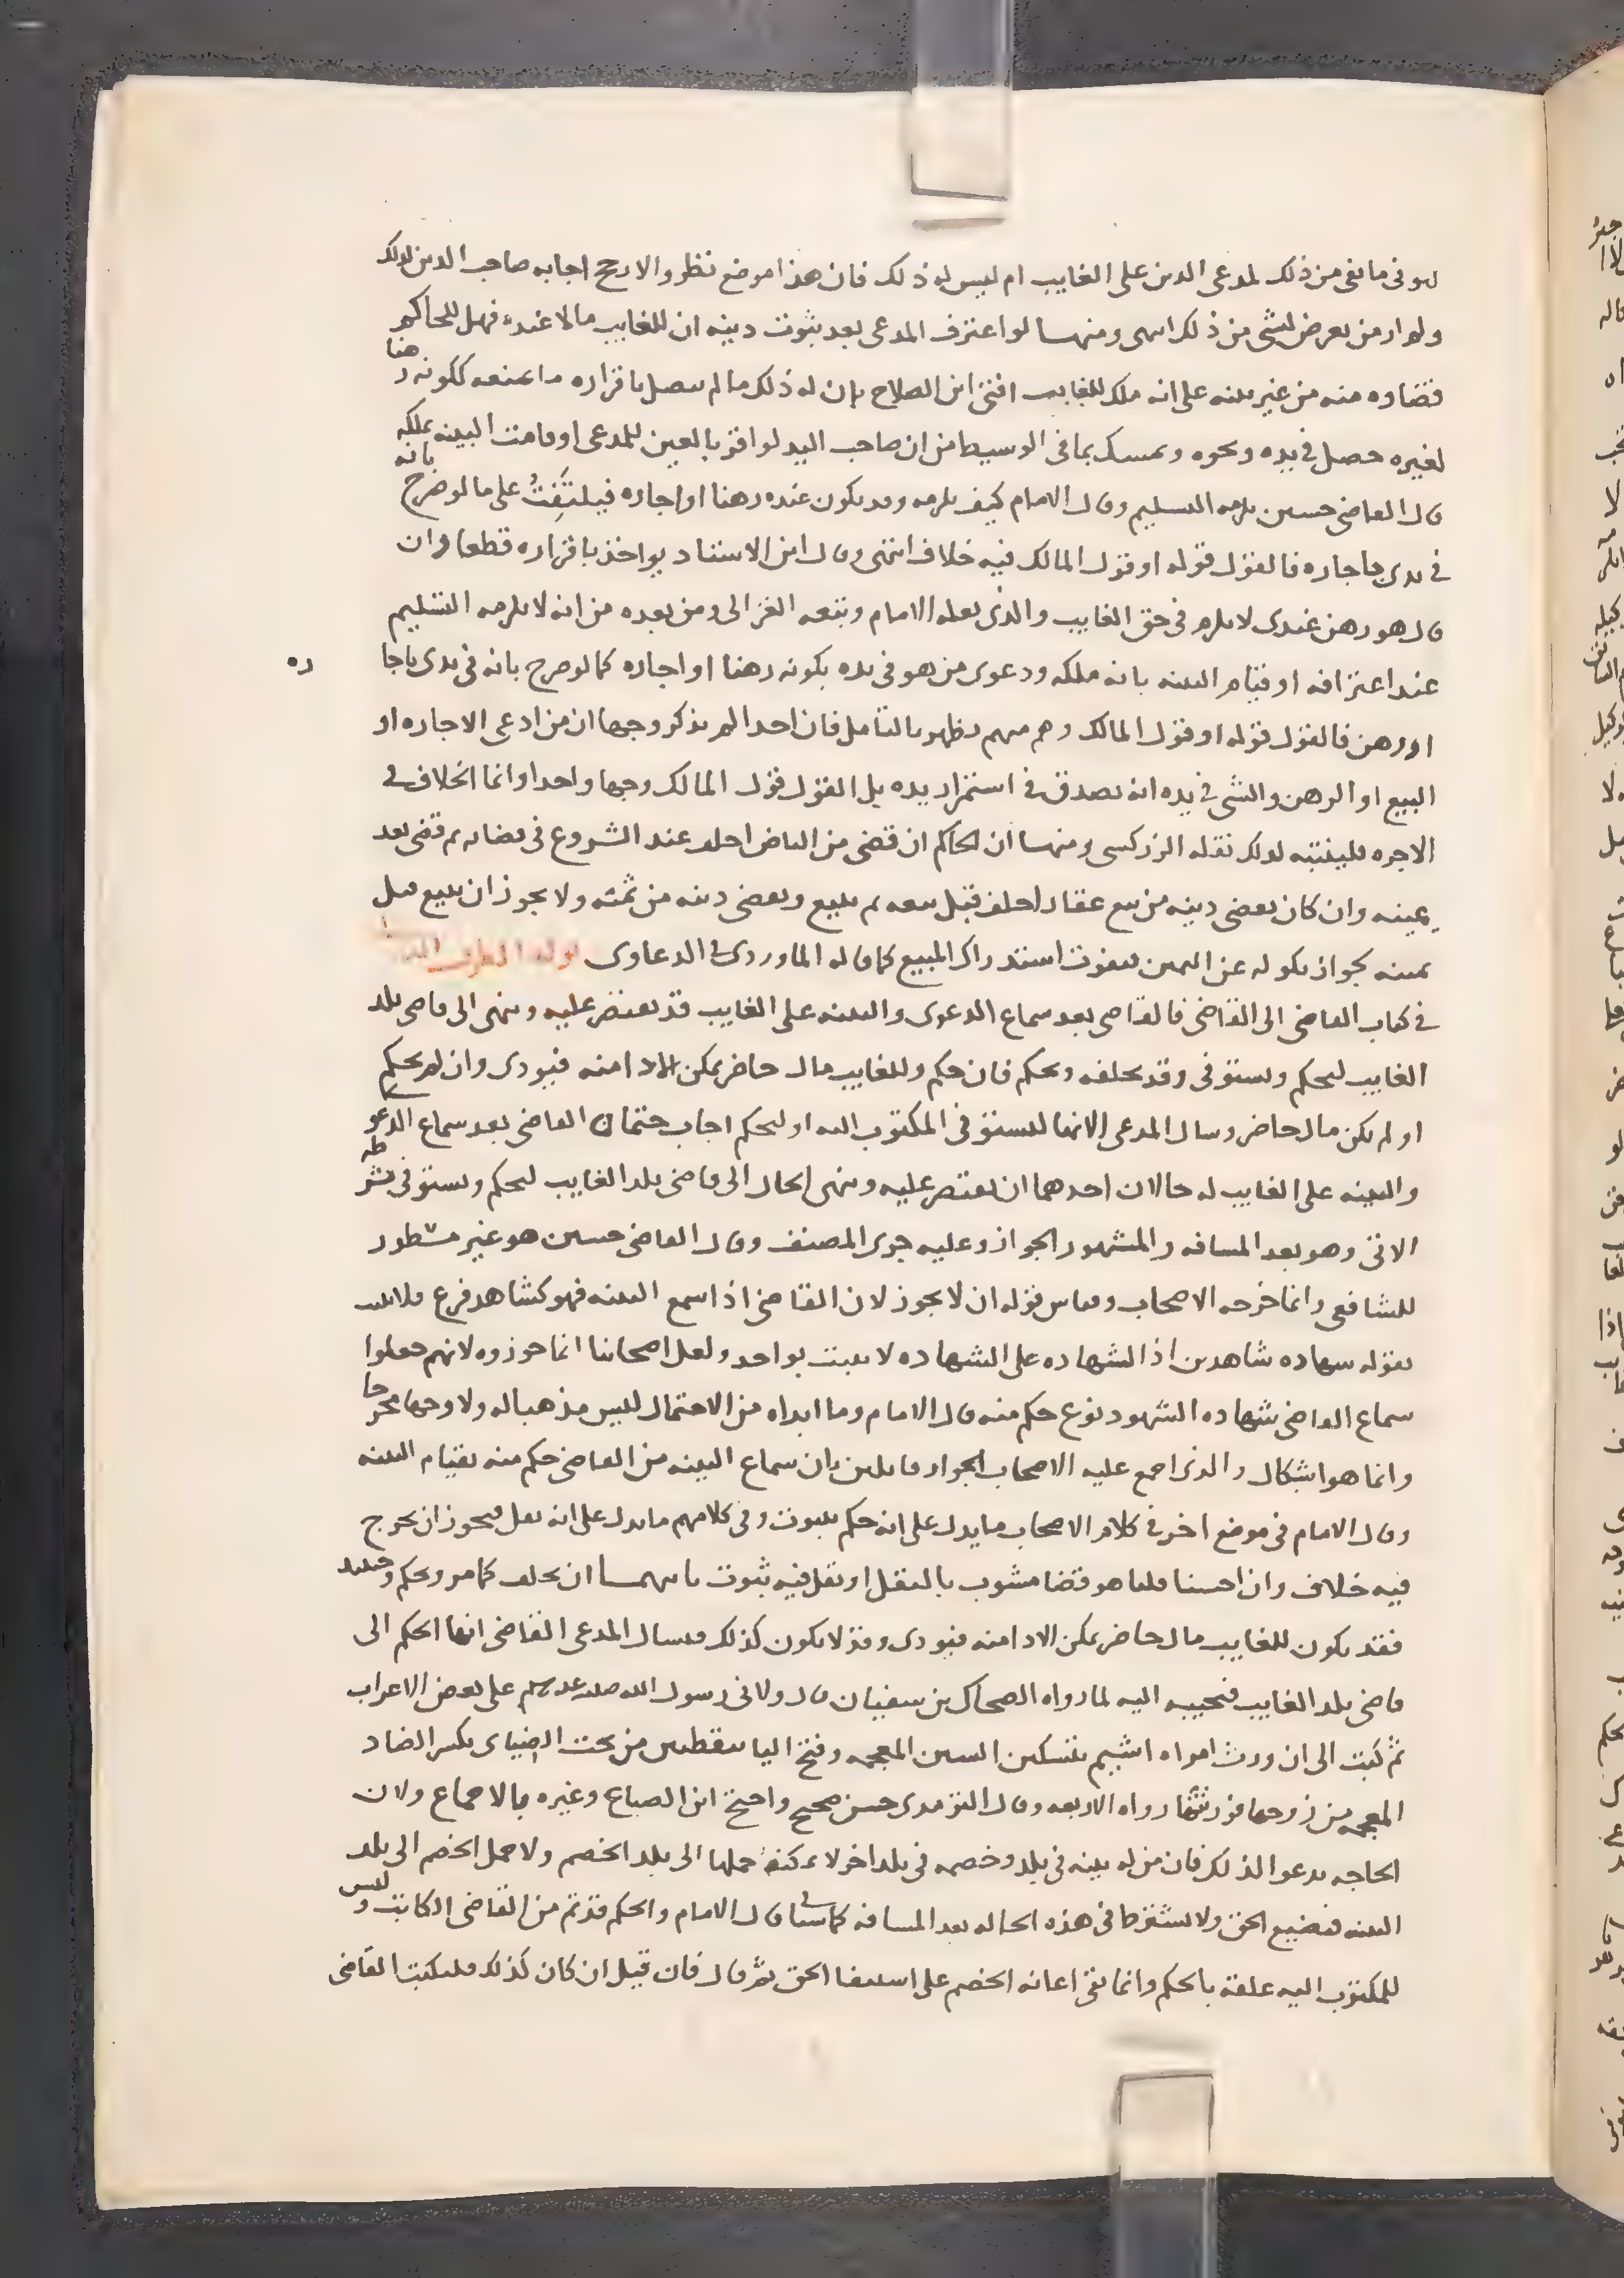 ليوفي ما بقي من ذلك لمدعي الدين على الغايب ام ليس له ذلك فان هذا موضع نظر والارجح اجابه صاحب الدين لذلك
ولم ار من تعرض لشي من ذلك انتهى ومنها لو اعترف المدعي بعد ثبوت دينه ان للغايب مالا عنده فهل للحاكم
قضاوه منه من غير بينه على انه ملك للغايب افتى ابن الصلاح بان له ذلك ما لم يتصل باقراره ما يمنعه ككونه رهنا
لغيره حصل في يده ونحوه وتمسك بما في الوسيط من ان صاحب اليد لو اقر بالعين للمدعي او قامت البينه بملكه
قال القاضي حسين يلزمه التسليم وقال الامام كيف يلزمه وقد يكون عنده رهنا او اجاره فيلتفت على ما لو صرح بانه
في يدي باجاره فالقول قوله او قول المالك فيه خلاف انتهى وقال ابن الاستاد يواخذ باقراره قطعا وان
قال هو رهن عندي لا يلزم في حق الغايب والذي نقله الامام وتبعه الغزالي ومن بعده من انه لا يلزمه التسليم
عند اعترافه او قيام البينه بانه ملكه ودعوى من هو في يده بكونه رهنا او اجاره كما لو صرح بانه في يدي باجا ره
او رهن فالقول قوله او قول المالك وهم منهم يظهر بالتامل فان احدا لم يذكر وجها ان من ادعى الاجاره او
البيع او الرهن والشي في يده انه يصدق في استمرار يده بل القول قول المالك وجها واحدا وانما الخلاف في
الاجره فليتنبه لذلك نقله الزركشي ومنها ان الحاكم ان قضى من الناض احلف عند الشروع في قضائه ثم قضى بعد
يمينه وان كان يقضي دينه من بيع عقار احلف قبل بيعه ثم يبيع ويقضي دينه من ثمنه ولا يجوز ان يبيع قبل
يمينه لجواز نكوله عن اليمين فيفوت استدراك المبيع كما قاله الماوردي في الدعاوى قوله الطرف
في كتاب القاضي الى القاضي فالقاضي بعد سماع الدعوى والبينه على الغايب قد يقتصر عليه وينهي الى قاضي بلد
الغايب ليحكم ويستوفي وقد يحلفه ويحكم فان حكم وللغايب مال حاضر يمكن الادا منه فيودى وان لم يحكم
او لم يكن مال حاضر وسال المدعي الانها ليستوفي المكتوب اليه او ليحكم اجاب حتما القاضي بعد سماع الدعوى
والبينه على الغايب له حالان احدهما ان يقتصر عليه وينهي الحال الى قاضي بلد الغايب ليحكم ويستوفي بشرطه
الاتي وهو بعد المسافه والمشهور الجواز وعليه جرى المصنف وقال القاضي حسين هو غير مسطور
للشافعي وانما خرجه الاصحاب وقياس قوله ان لا يجوز لان القاضي اذا سمع البينه فهو كشاهد فرع فلا يثبت
بقوله شهاده شاهدين اذ الشهاده على الشهاده لا يثبت بواحد ولعل اصحابنا انما جوزوه لانهم جعلوا
سماع القاضي شهاده الشهود نوع حكم منه قال الامام وما ابداه من الاحتمال ليس مذهبا له ولا وجها مخرجا
وانما هو اشكال والذي اجمع عليه الاصحاب الجواز قايلين بان سماع البينه من القاضي حكم منه بقيام البينه
وقال الامام في موضع اخر في كلام الاصحاب ما يدل على انه حكم بثبوت وفي كلامهم ما يدل على انه نقل فيجوز ان يخرج
فيه خلاف وان احسنا قلنا هو قضا مشوب بالنقل او نقل فيه ثبوت ثانيهما ان يحلف كما مر ويحكم وحينيذ
فقد يكون للغايب مال حاضر يمكن الادا منه فيودى وقد لا يكون كذلك فيسال المدعي القاضي انها الحكم الى
قاضي بلد الغايب فيجيبه اليه لما رواه الضحاك بن سفيان قال ولاني رسول الله صلى الله عليه وسلم على بعض الاعراب
ثم كتب الى ان ورث امراه اشيم بتسكين الشين المعجمه وفتح اليا بنقطتين من تحت الضبابي بكسر الضاد
المعجمه من زوجها فورثتها رواه الاربعه وقال الترمذي حسن صحيح واحتج ابن الصباغ وغيره بالاجماع ولان
الحاجه تدعوا لذلك فان من له بينه في بلد وخصمه في بلد اخر لا يمكنه حملها الى بلد الخصم ولا حمل الخصم الى بلد
البينه فيضيع الحق ولا يشترط في هذه الحاله بعد المسافه كما سياتي قال الامام والحكم قد تم من القاضي الكاتب وليس
للمكتوب اليه علقة بالحكم وانما بقى اعانه الخصم على استيفا الحق ثم قال فان قيل ان كان كذلك فليكتب القاضي